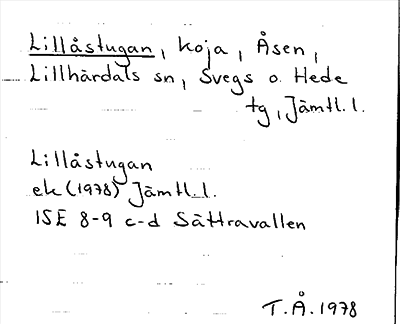 Lillåstugan, koja, Åsen,
Lillhärdals sn, Svegs o. Hede
tg, Jämtl. l.
Lillåstugan
ek (1978) Jämtl. l.
15E 8-9 c-d Sättravallen
T.Å. 1978